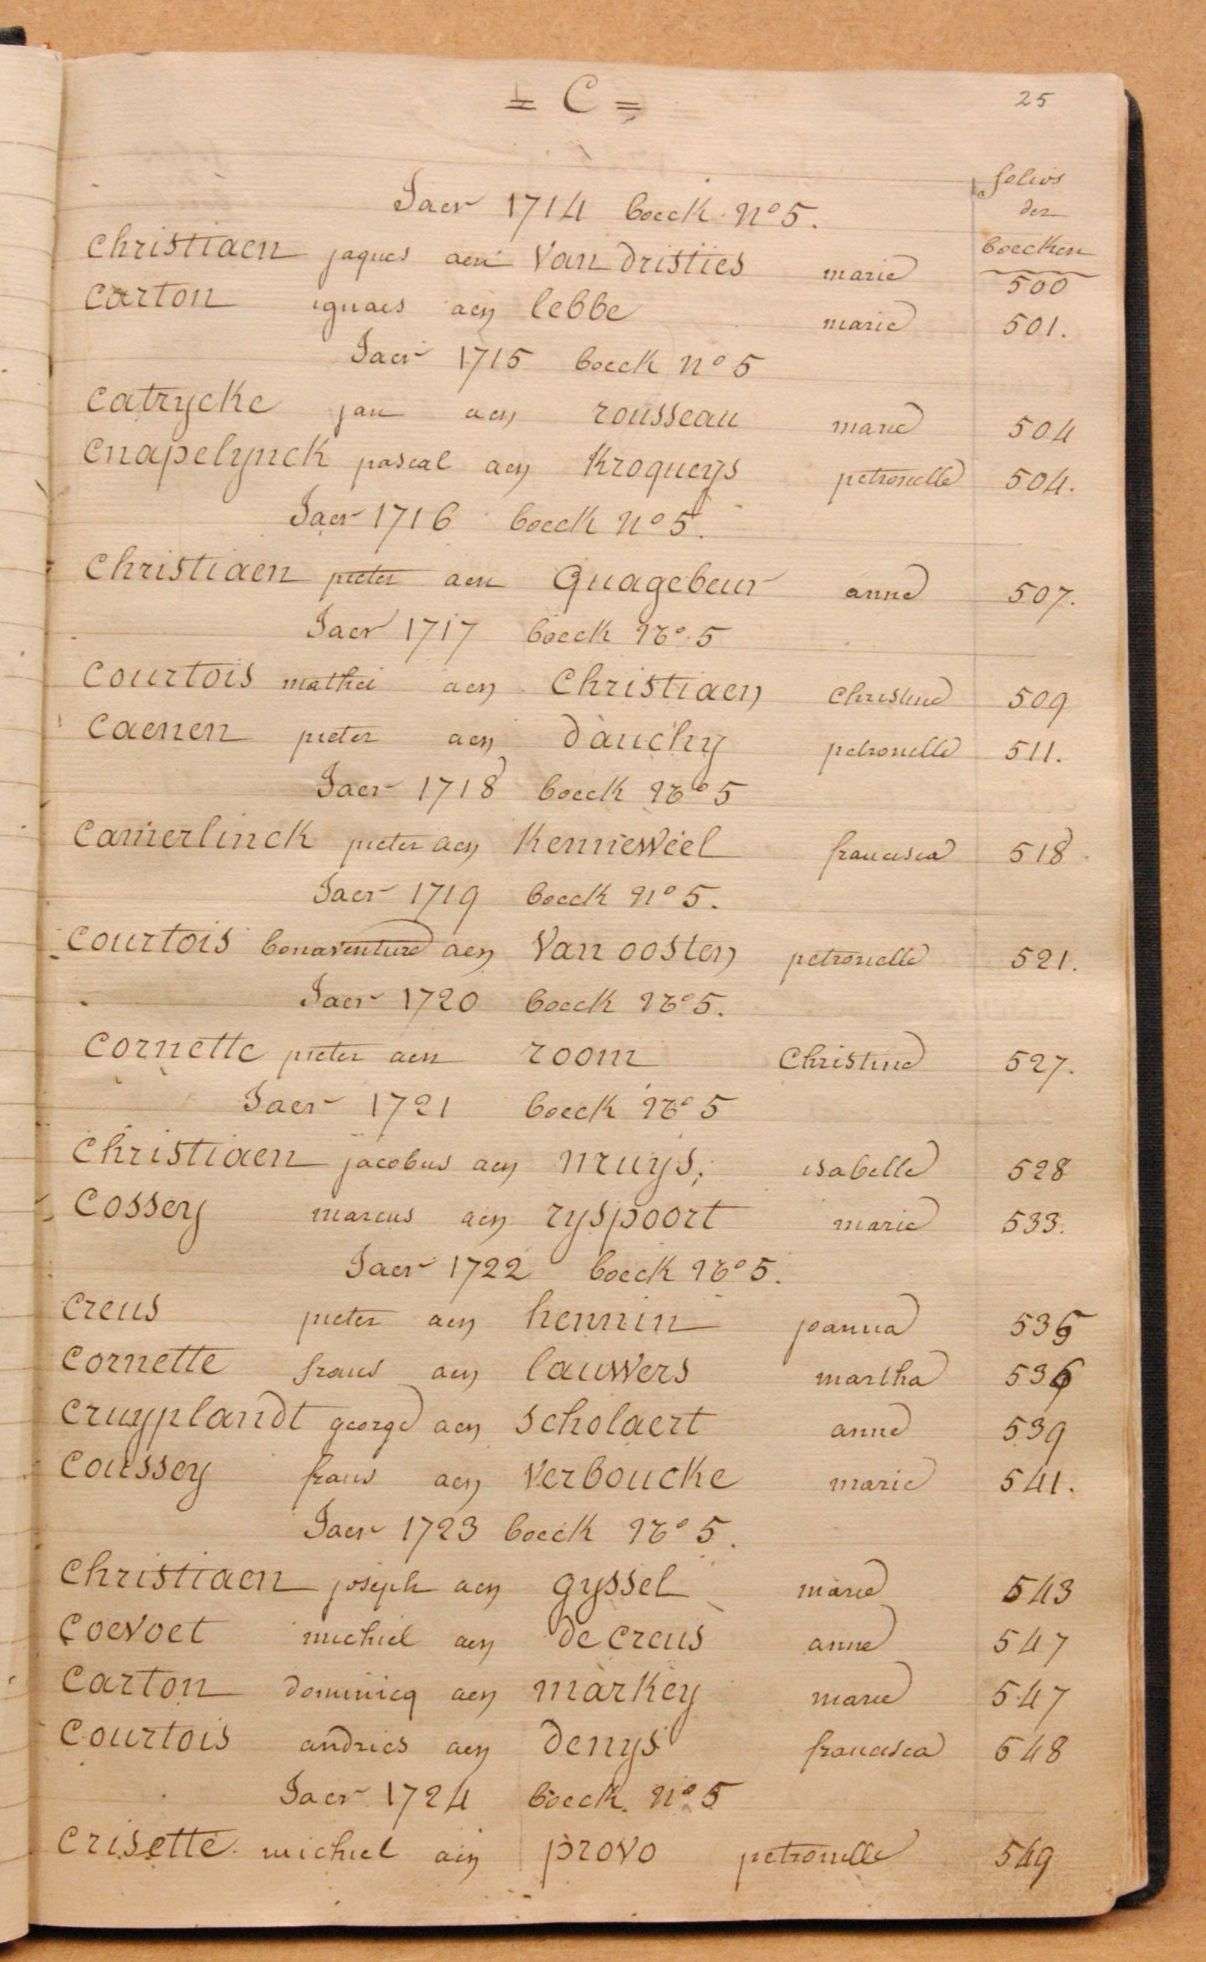 = C =
25
folios
der
boecken
Jaer 1714 boeck n° 5.
Christiaen jaques aen Van Dristies marie 500
Carton ignaes aen lebbe marie 501.
Jaer 1715 boeck n° 5
Catrycke jan aen rousseau marie 504
Cnapelynck pascal aen Kroqueys petronelle 504.
Jaer 1716 boeck n° 5.
Christiaen pieter aen Quagebeur anne 507.
Jaer 1717 boeck N° 5
Courtois mathei aen Christiaen Christine 509
Caenen pieter aen dauchy petronelle 511.
Jaer 1718 boeck N° 5
Camerlinck pieter aen Kenneweel francisca 518
Jaer 1719 boeck N° 5.
Courtois bonaventure aen Van oosten petronelle 521.
Jaer 1720 boeck N° 5.
Cornette pieter aen room Christine 527.
Jaer 1721 boeck N° 5
Christiaen jacobus aen nruys, isabelle 528
Cossey marcus aen ryspoort marie 533.
Jaer 1722 boeck N° 5.
Creus pieter aen hennin joanna 536
Cornette frans aen lauwers martha 536
Cruyplandt george aen Scholaert anne 539
Coussey frans aen Verboucke marie 541.
Jaer 1723 boeck N° 5.
Christiaen joseph aen gyssel marie 543
Coevoet michiel aen de Creus anne 547
Carton dominicq aen markey marie 547
Courtois andries aen denys francisca 548
Jaer 1724 boeck N° 5
Crisette michiel aen provo petronelle 549